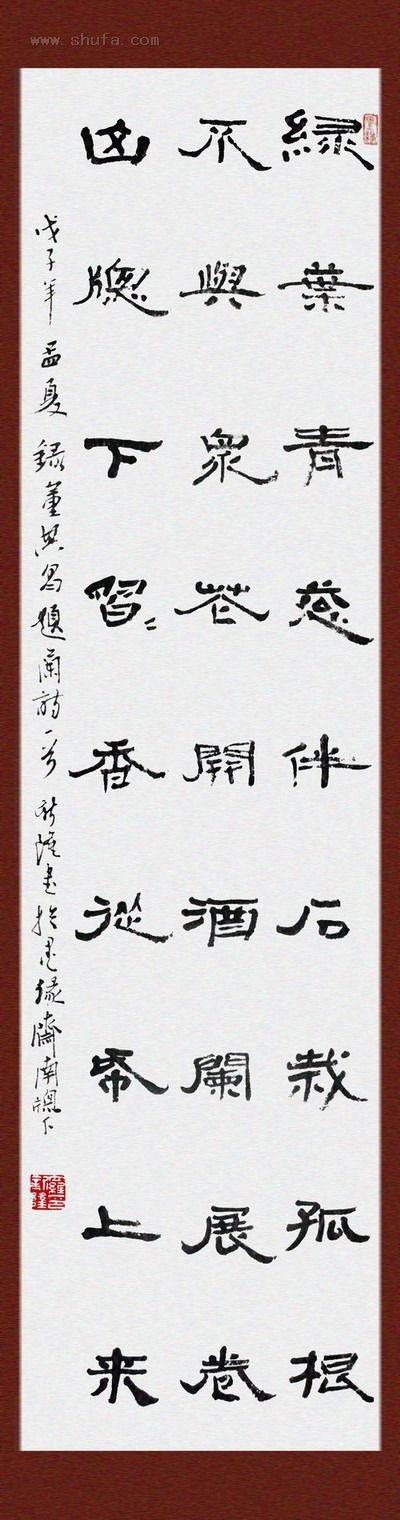 www.shufa.com
綠葉青葱伴石栽孤根
不與衆花開酒闌展卷
山牕下習〻香從帋上來
戊子年孟夏錄董其昌題蘭詩一首 書於墨緣齋南牕下